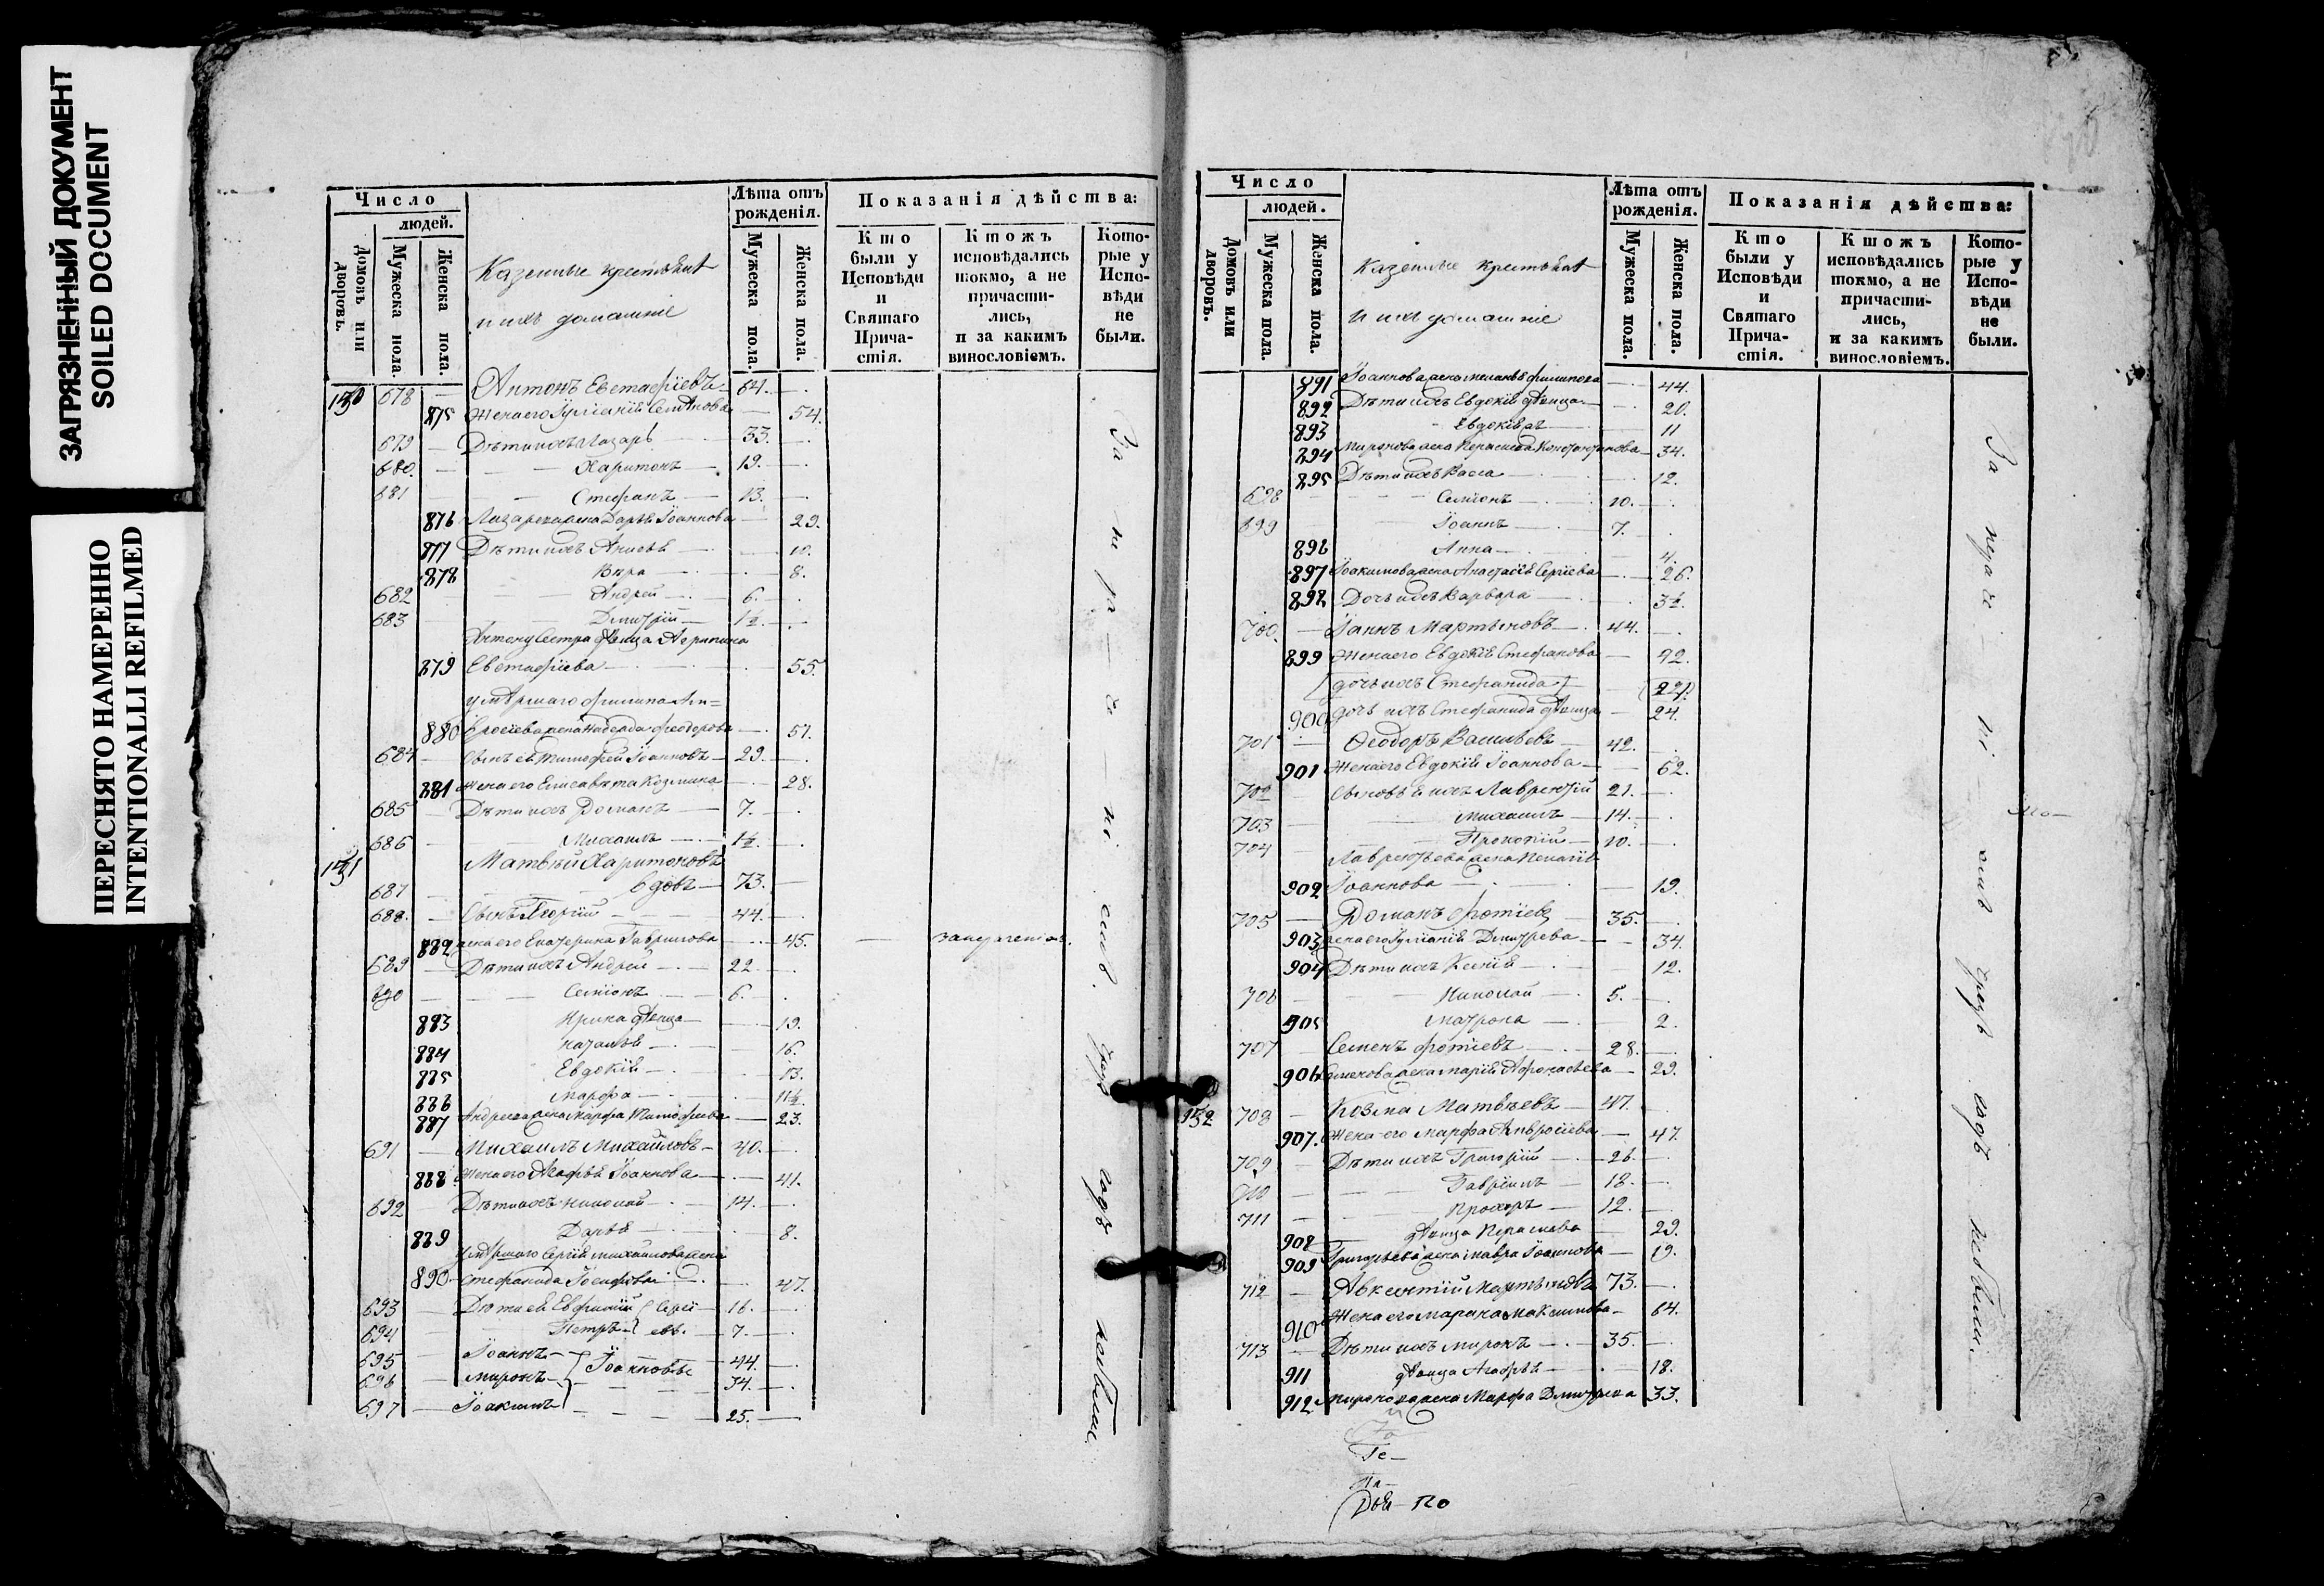 ЗАГРЯЗНЕННЫЙ ДОКУМЕНТ
SOILED DOCUMENT
ПЕРЕСНЯТО НАМЕРЕННО
INTENTIONALLI REFILMED
Число
людей.
Домовъ или дворовъ.
Мужеска пола.
Женска пола.
Казенные крестьяне
и ихъ домашніе
Лѣта отъ рожденія.
Мужеска пола.
Женска пола.
Показанія дѣйства:
Кто были у Исповѣди и Святаго Причастія.
Ктожъ исповѣдались токмо, а не причастились, и за какимъ винословіемъ.
Которые у Исповѣди не были.
150 678 — Антонъ Евстафіевъ 64. —
875 Жена его Іуліанія Семенова — 54.
679 — Дѣти ихъ Лазарь 33. —
680. — Харитонъ 19. —
681 — Стефанъ — 13. —
876 Лазарева жена Дарья Іоаннова — 29.
877 Дѣти ихъ Анисья — 10.
878 Вѣра — 8.
682 Андрей — 6.
683 Димитрій — 1½. —
Антону сестра дѣвица Агрипина
879 Евстафіева — 55.
умершаго Филипа Ам=
880 вросіева жена Надежда Феодорова — 51.
684 — Сынъ ея Тимофей Іоанновъ — 29. —
881 Жена его Елисавета Козмина — 28.
685 Дѣти ихъ Романъ — 7. —
686 — Михаилъ — 1½. —
151 Матвѣй Харитоновъ
687 — вдовъ — 73. —
688. — Сынъ Георгій — 44. —
882 жена его Екатерина Гаврилова — 45. —
689 — Дѣти ихъ Андрей — 22 —
690 — Семіонъ — 6. —
883 Ирина дѣвица — 19.
884 Наталья — 16.
885 Евдокія — 13.
886 Марфа — 11½.
887 Андреева жена Марфа Тимофеева — 23.
691 — Михаилъ Михайловъ — 40. —
888 Жена его Агафья Іоаннова — 41.
692 — Дѣти ихъ Николай — 14. —
889 Дарья — 8.
умершаго Сергія Михайлова жена
890 Стефанида Іосифова — 47.
693 — Дѣти ея Евфимій } Сергі — 16. —
694 Петръ } евы. — 7. —
695 — Іоаннъ — } Іоанновы — 44. —
696 — Миронъ — 34. —
697 — Іоакимъ — 25. —
не были.
Число
людей.
Домовъ или дворовъ.
Мужеска пола.
Женска пола.
Казенные крестьяне
и ихъ домашніе
Лѣта отъ рожденія.
Мужеска пола.
Женска пола.
Показанія дѣйства:
Кто были у Исповѣди и Святаго Причастія.
Ктожъ исповѣдались токмо, а не причастились, и за какимъ винословіемъ.
Которые у Исповѣди не были.
891 — 44.
892 Дѣти ихъ Евдокія дѣвица — 20.
893 — Евдокія — 11
894 Миронова жена Параскева Константинова — 34.
895 Дѣти ихъ Васса — 12.
698 — Семіонъ — 10. —
699 Іоаннъ — 7. —
896 Анна — 4.
897 Іоакимова жена Анастасія Сергіева — 26.
898 Дочь ихъ Варвара — 3½.
700. — Іоаннъ Мартыновъ — 44. —
899 Жена его Евдокія Стефанова — 42.
[дочь ихъ Стефанида]
900 дочь ихъ Стефанида дѣвица — 24.
701 — Феодоръ Васильевъ — 42. —
901 Жена его Евдокія Іоаннова — 62.
702 — Сыновья ихъ Лаврентій 21. —
703 — Михаилъ — 14. —
704 — Прокопій — 10. —
Лаврентьева жена Пелагія
902 Іоаннова — 19.
705 — Романъ Фотіевъ — 35. —
903 жена его Іуліанія Димитрева — 34.
904 Дѣти ихъ Ксенія — 12.
706 — Николай — 5. —
905 Матрона — 2.
707 — Семенъ Фотіевъ — 28. —
906 Семенова жена Марія Афонасьева — 29.
152 708 — Козма Матвѣевъ — 47. —
907. Жена его Марфа Амвросіева — 47.
709 — Дѣти ихъ Григорій — 26. —
710 — Гавріилъ — 18. —
711 — Прохоръ — 12. —
908 дѣвица Параскева — 29.
909 Григорьева жена Мавра Іоаннова — 19.
712 — Авксентій Мартыновъ 73. —
910 Жена его Марина Максимова — 64.
713 — Дѣти ихъ Миронъ — 35. —
911 дѣвица Агафья — 18.
912 Миронова жена Марфа Димитрева 33.
не были.